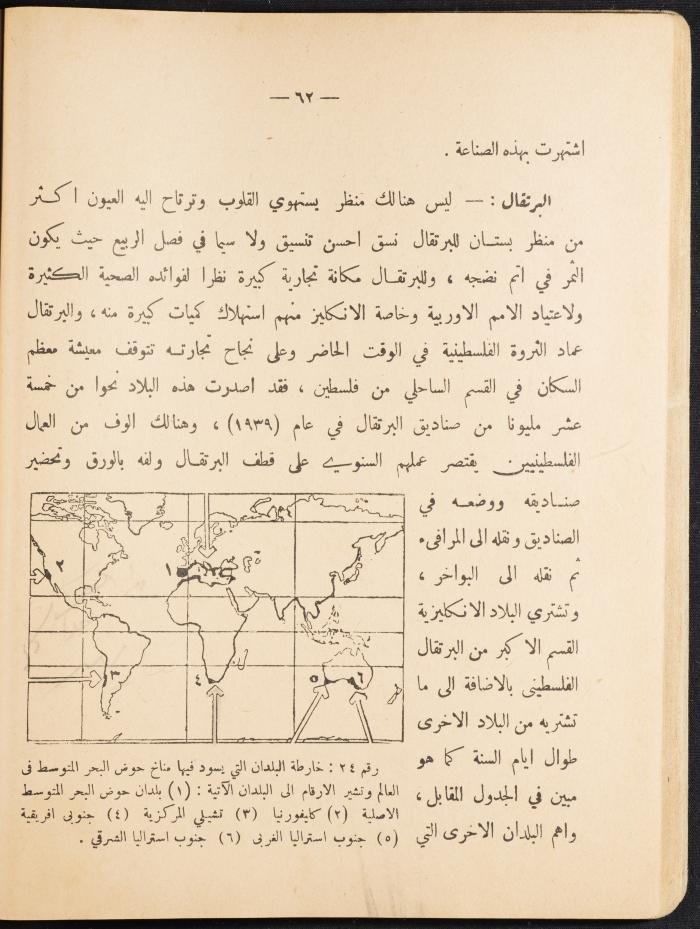 — ٦٢ —
اشتهرت بهذه الصناعة .
البرتقال : — ليس هنالك منظر يستهوي القلوب وترتاح اليه العيون اكثر
من منظر بستان للبرتقال نسق احسن تنسيق ولا سيما في فصل الربيع حيث يكون
الثمر في اتم نضجه ، وللبرتقال مكانة تجارية كبيرة نظرا لفوائده الصحية الكثيرة
ولاعتياد الامم الاوربية وخاصة الانكليز منهم استهلاك كميات كبيرة منه ، والبرتقال
عماد الثروة الفلسطينية في الوقت الحاضر وعلى نجاح تجارته تتوقف معيشة معظم
السكان في القسم الساحلي من فلسطين ، فقد اصدرت هذه البلاد نحوا من خمسة
عشر مليونا من صناديق البرتقال في عام (١٩٣٩) ، وهنالك الوف من العمال
الفلسطينيين يقتصر عملهم السنوي على قطف البرتقال ولفه بالورق وتحضير
صناديقه ووضعه في
الصناديق ونقله الى المرافىء
ثم نقله الى البواخر ،
وتشتري البلاد الانكليزية
القسم الاكبر من البرتقال
الفلسطينى بالاضافة الى ما
تشتريه من البلاد الاخرى
طوال ايام السنة كما هو
مبين في الجدول المقابل ،
واهم البلدان الاخرى التي
١
٢
٣
٤
٥
٦
رقم ٢٤ : خارطة البلدان التي يسود فيها مناخ حوض البحر المتوسط فى
العالم وتشير الارقام الى البلدان الآتية : (١) بلدان حوض البحر المتوسط
الاصلية (٢) كليفورنيا (٣) تشيلي المركزية (٤) جنوبى افريقية
(٥) جنوب استراليا الغربى (٦) جنوب استراليا الشرقي .